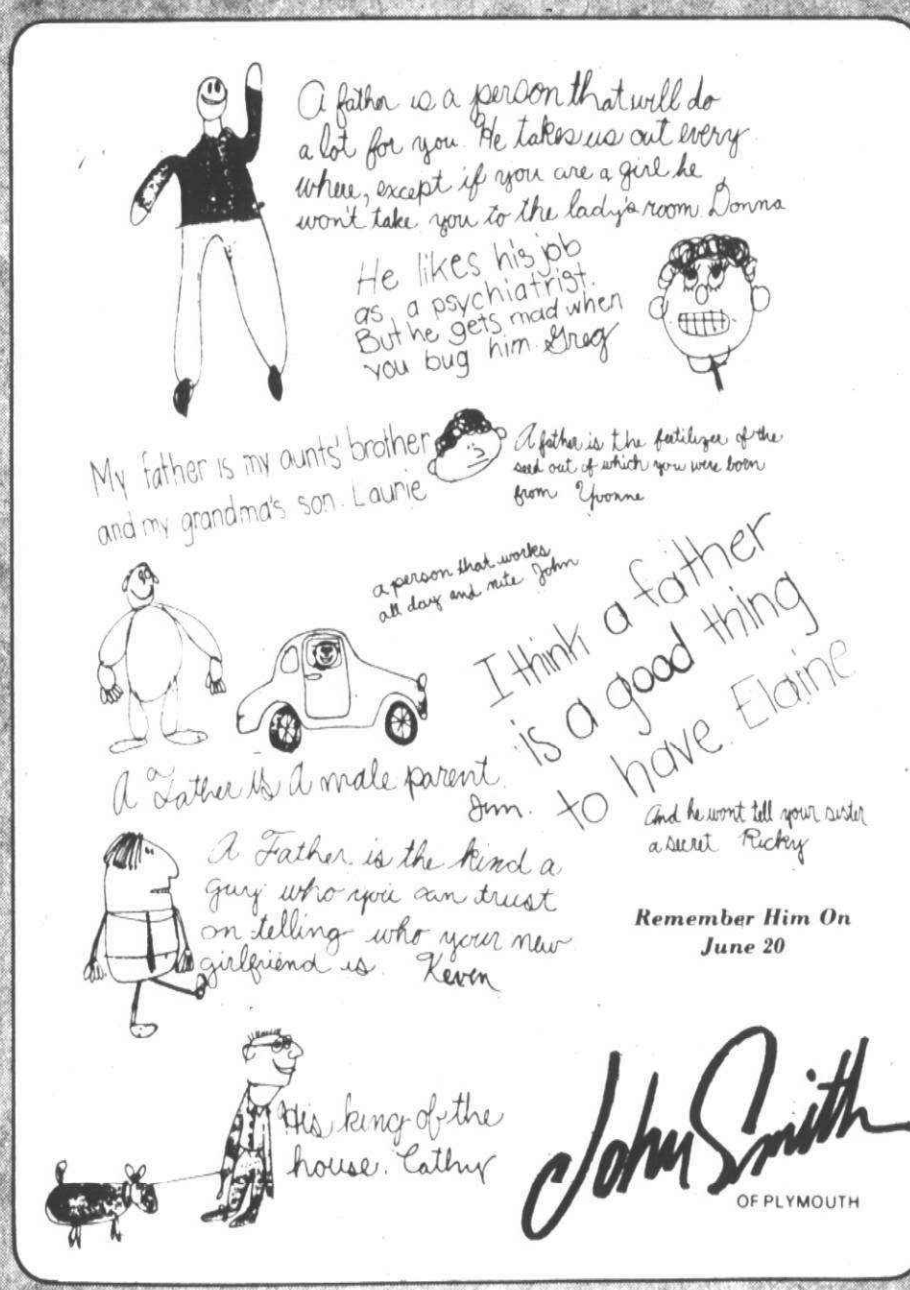 A father is a person that will do
a lot for you. He takes us out every
where, except if you are a girl he
won't take you to the lady's room Donna
He likes his job
as, a psychiatrist.
But he gets mad when
you bug him. Greg
My father is my aunts' brother
and my grandma's son. Laurie
A father is the fertilizer of the
seed out of which you were born
from Yvonne
a person that works
all day and nite John
I think a father
is a good thing
to have. Elaine
A Father is A male parent.
Jim.
And he wont tell your sister
a secret Ricky
A Father is the kind a
guy who you can trust
on telling who your new
girlfriend is. Keven
Remember Him On
June 20
His king of the
house. Cathy
John Smith
OF PLYMOUTH